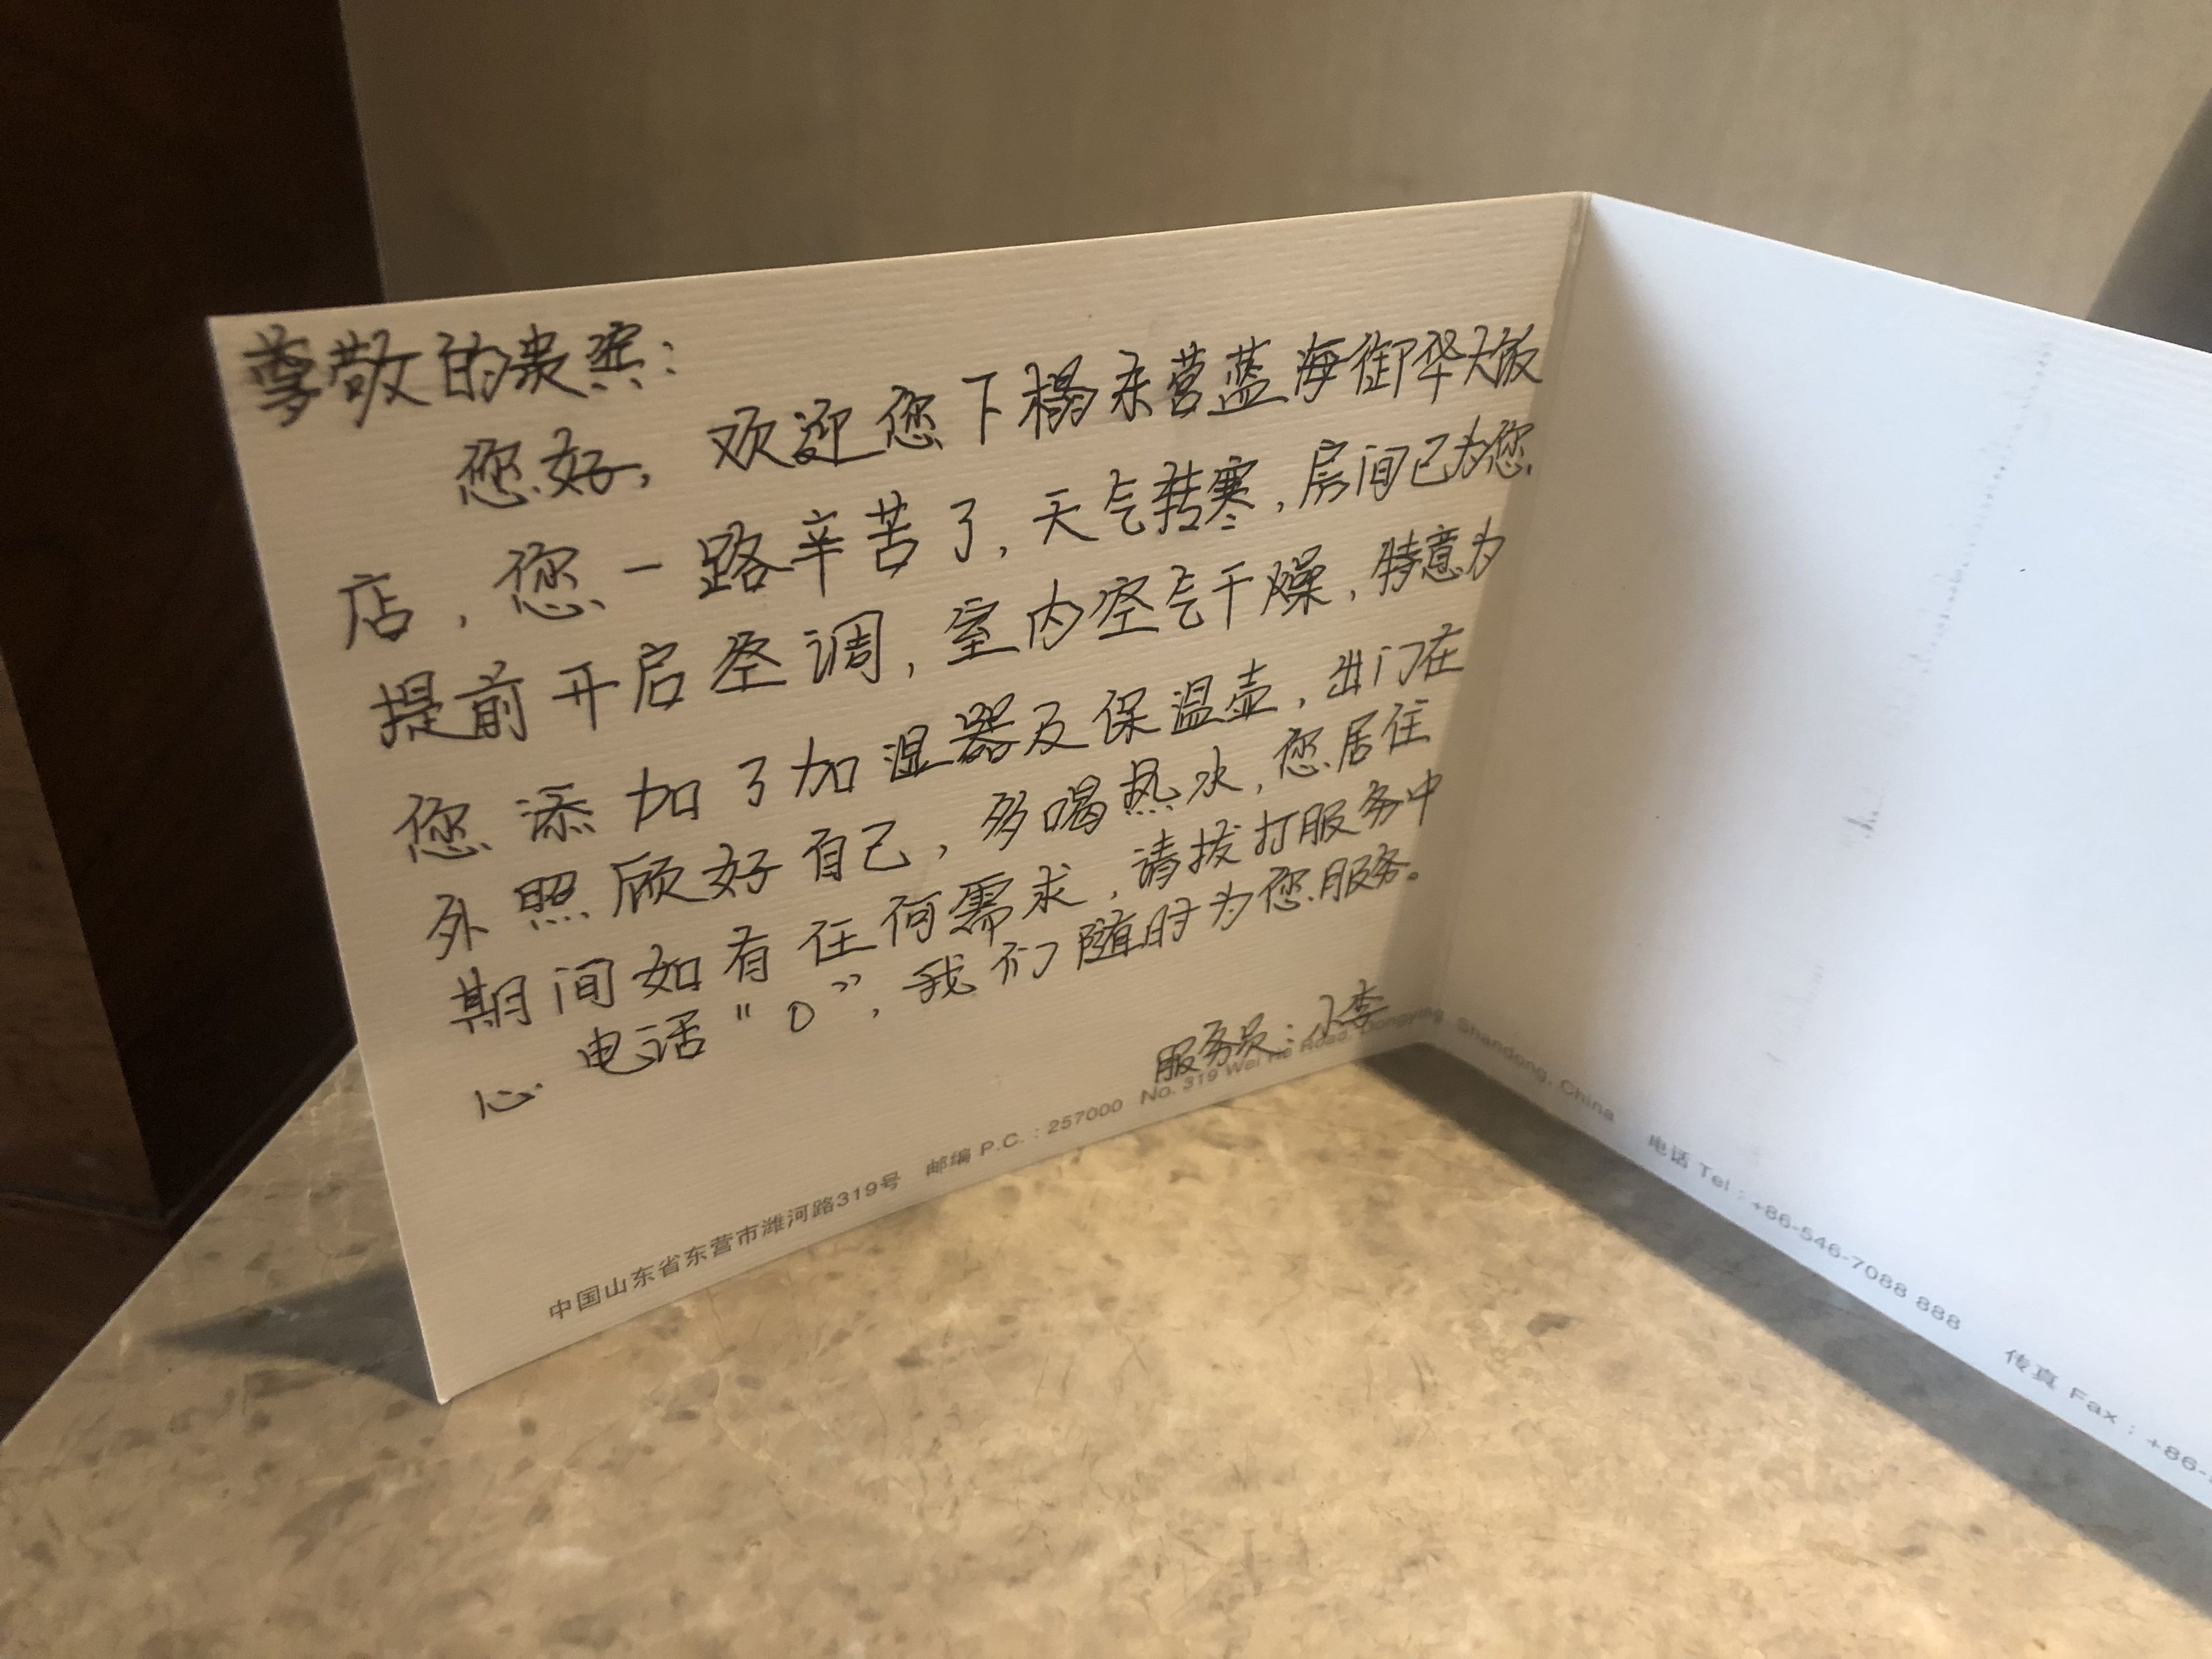 尊敬的贵宾：
您好，欢迎您下榻东营蓝海御华大饭
店，您一路辛苦了，天气转寒，房间已为您
提前开启空调，室内空气干燥，特意为
您添加了加湿器及保温壶，出门在
外照顾好自己，多喝热水，您居住
期间如有任何需求，请拔打服务中
心电话“0”，我们随时为您服务。
服务员：小李
中国山东省东营市潍河路319号 邮编 P.C. : 257000 No. 319 Wei He Road, Dongying, Shandong, China 电话 Tel : +86-546-7088 888 传真 Fax : +86-